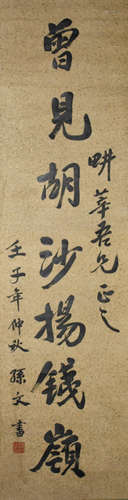 畊莘吾兄正之
曾見胡沙揚鐵嶺
壬子年仲秋 孫文書